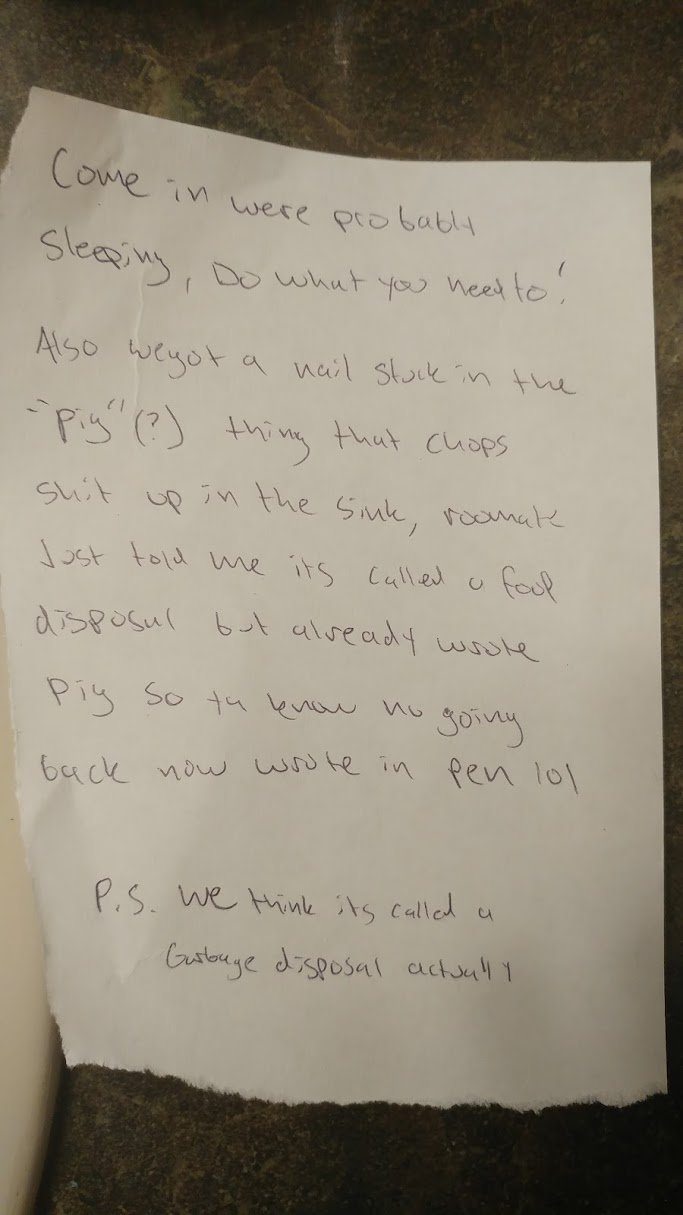 Come in were probably
Sleeping, Do what you need to!
Also we got a nail stuck in the
"pig"(?) thing that chops
shit up in the sink, roomate
Just told me its called a food
disposal but already wrote
pig so ya know no going
back now wrote in pen lol
P.S. We think its called a
Garbage disposal actually